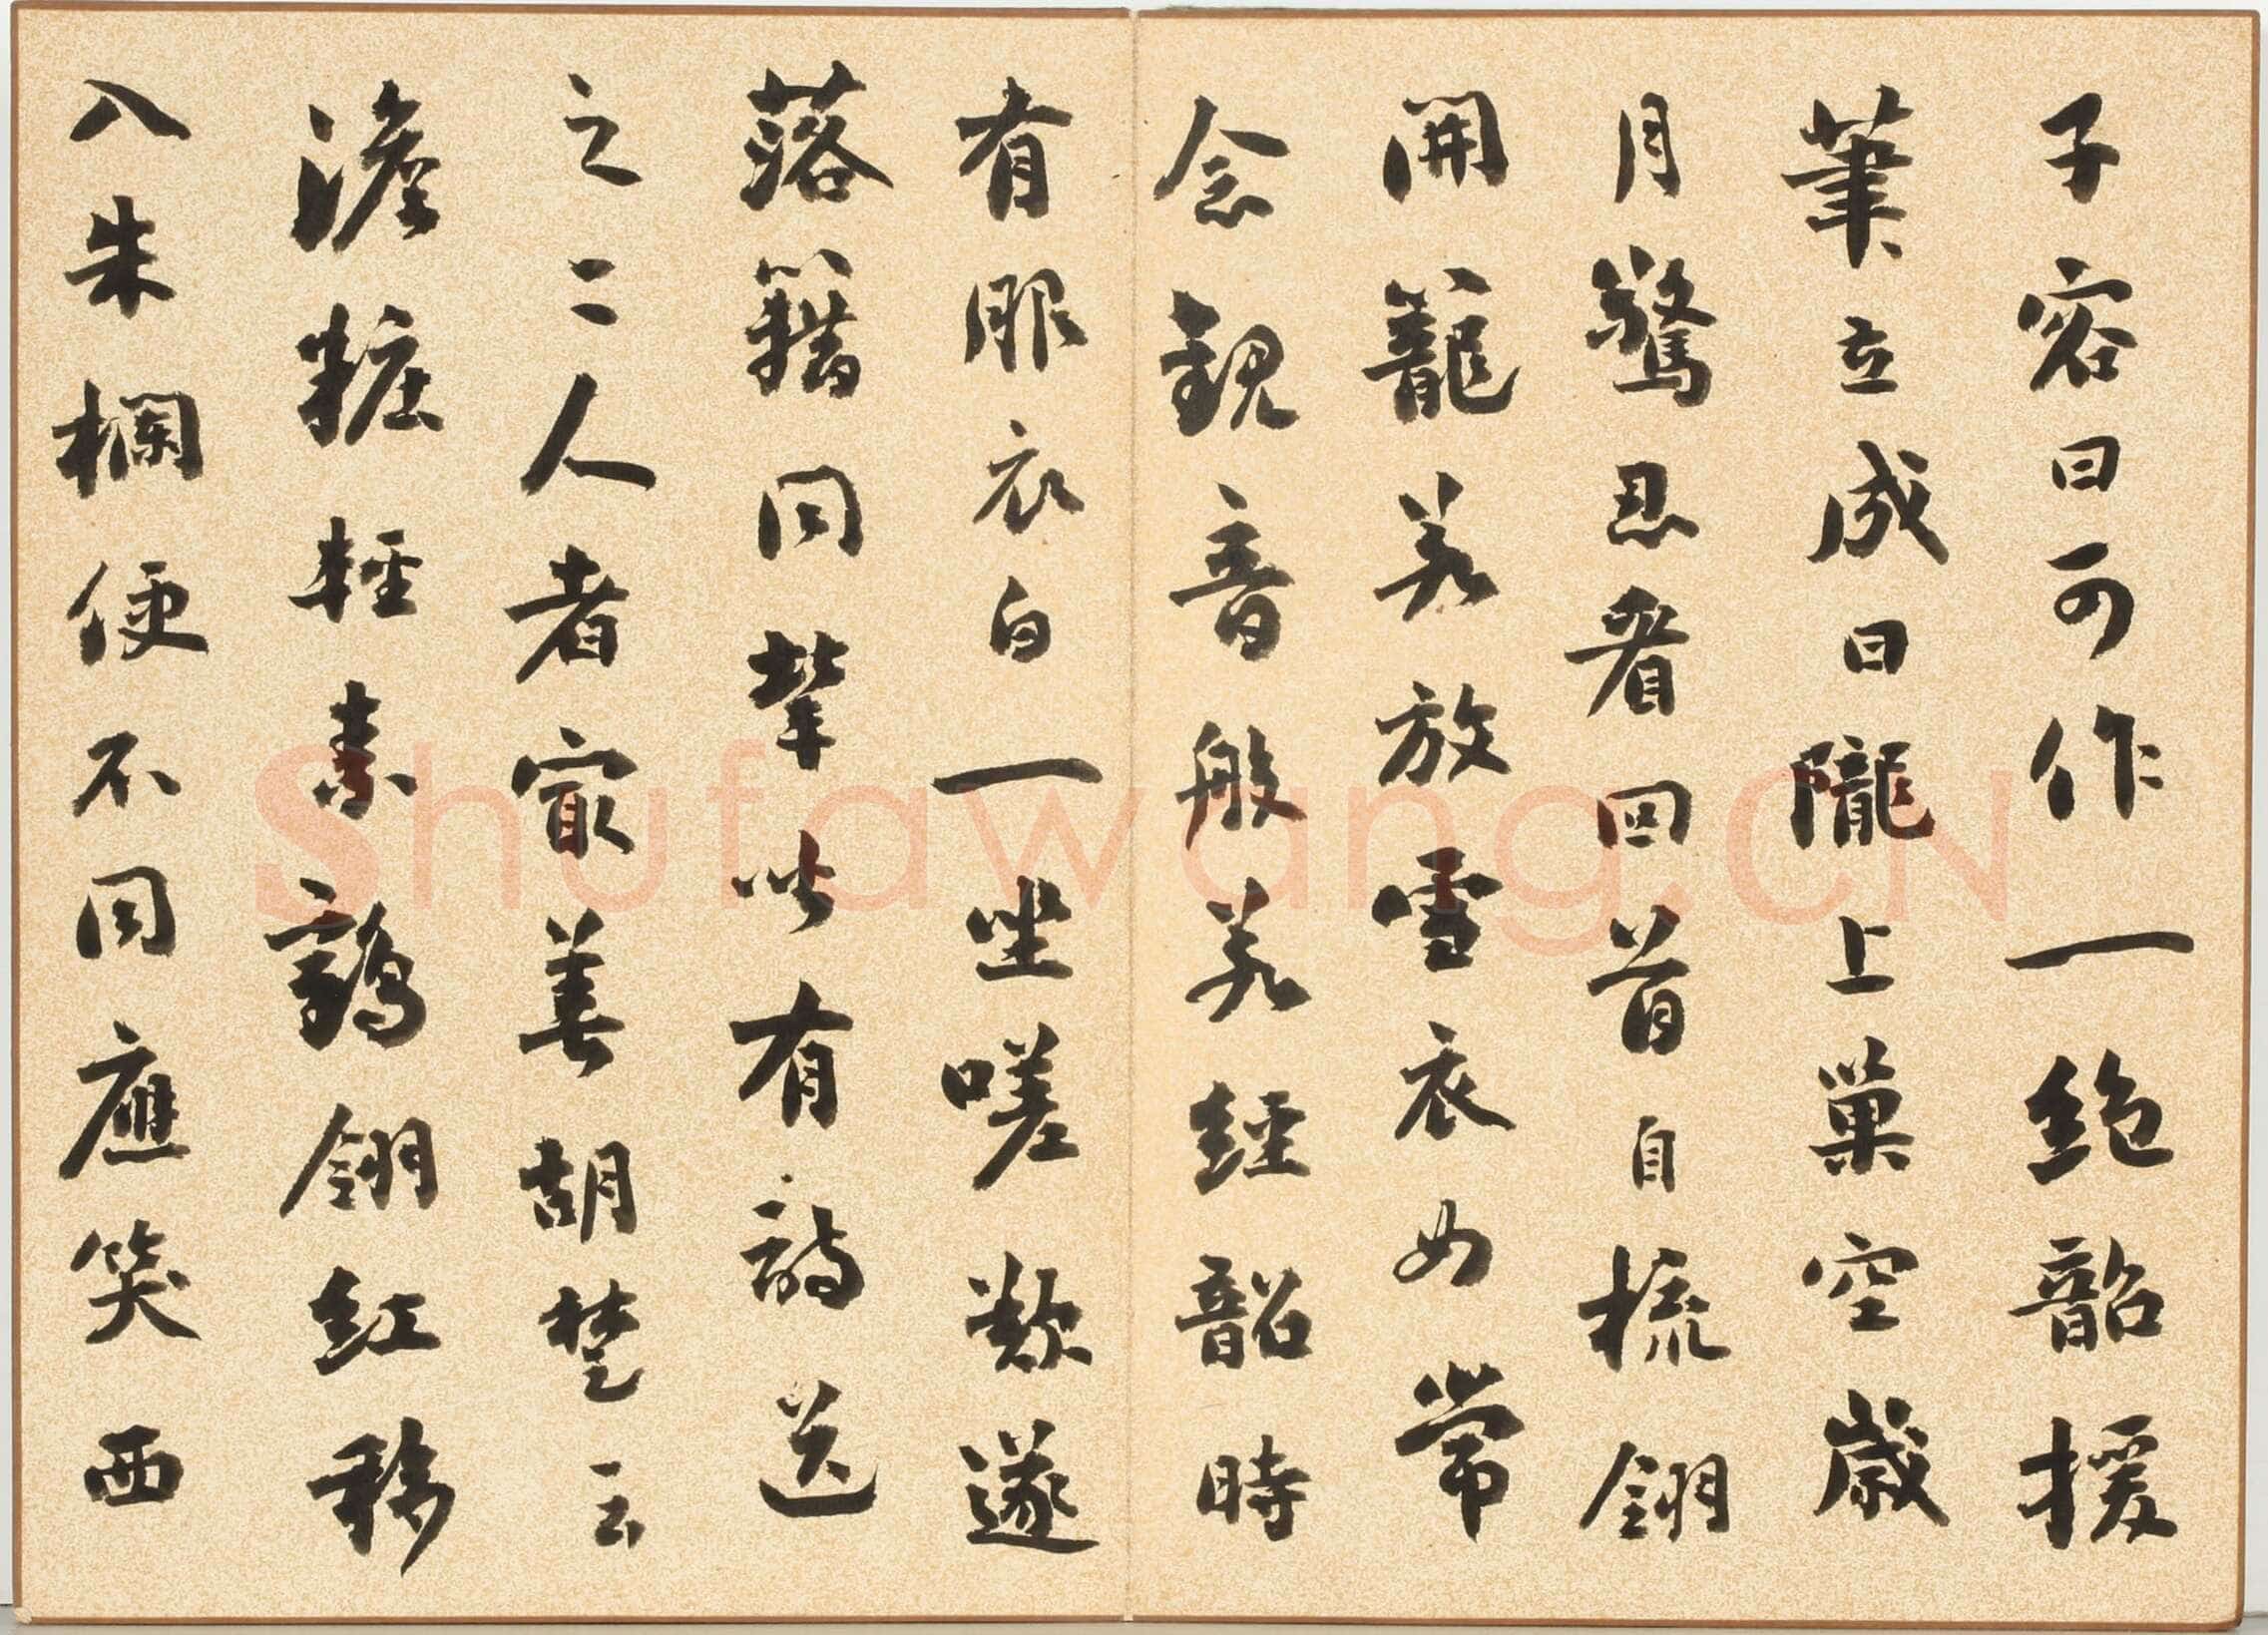 子容曰可作一絕韶援
筆立成曰隴上巢空歲
月驚忍看回首自梳翎
開籠若放雪衣女常
念觀音般若經韶時
有服衣白一坐嗟歎遂
落籍同輩皆有詩送
之二人者最善胡楚云
澹粧輕素鶴翎紅移
入朱欄便不同應笑西
Shufawang.CN